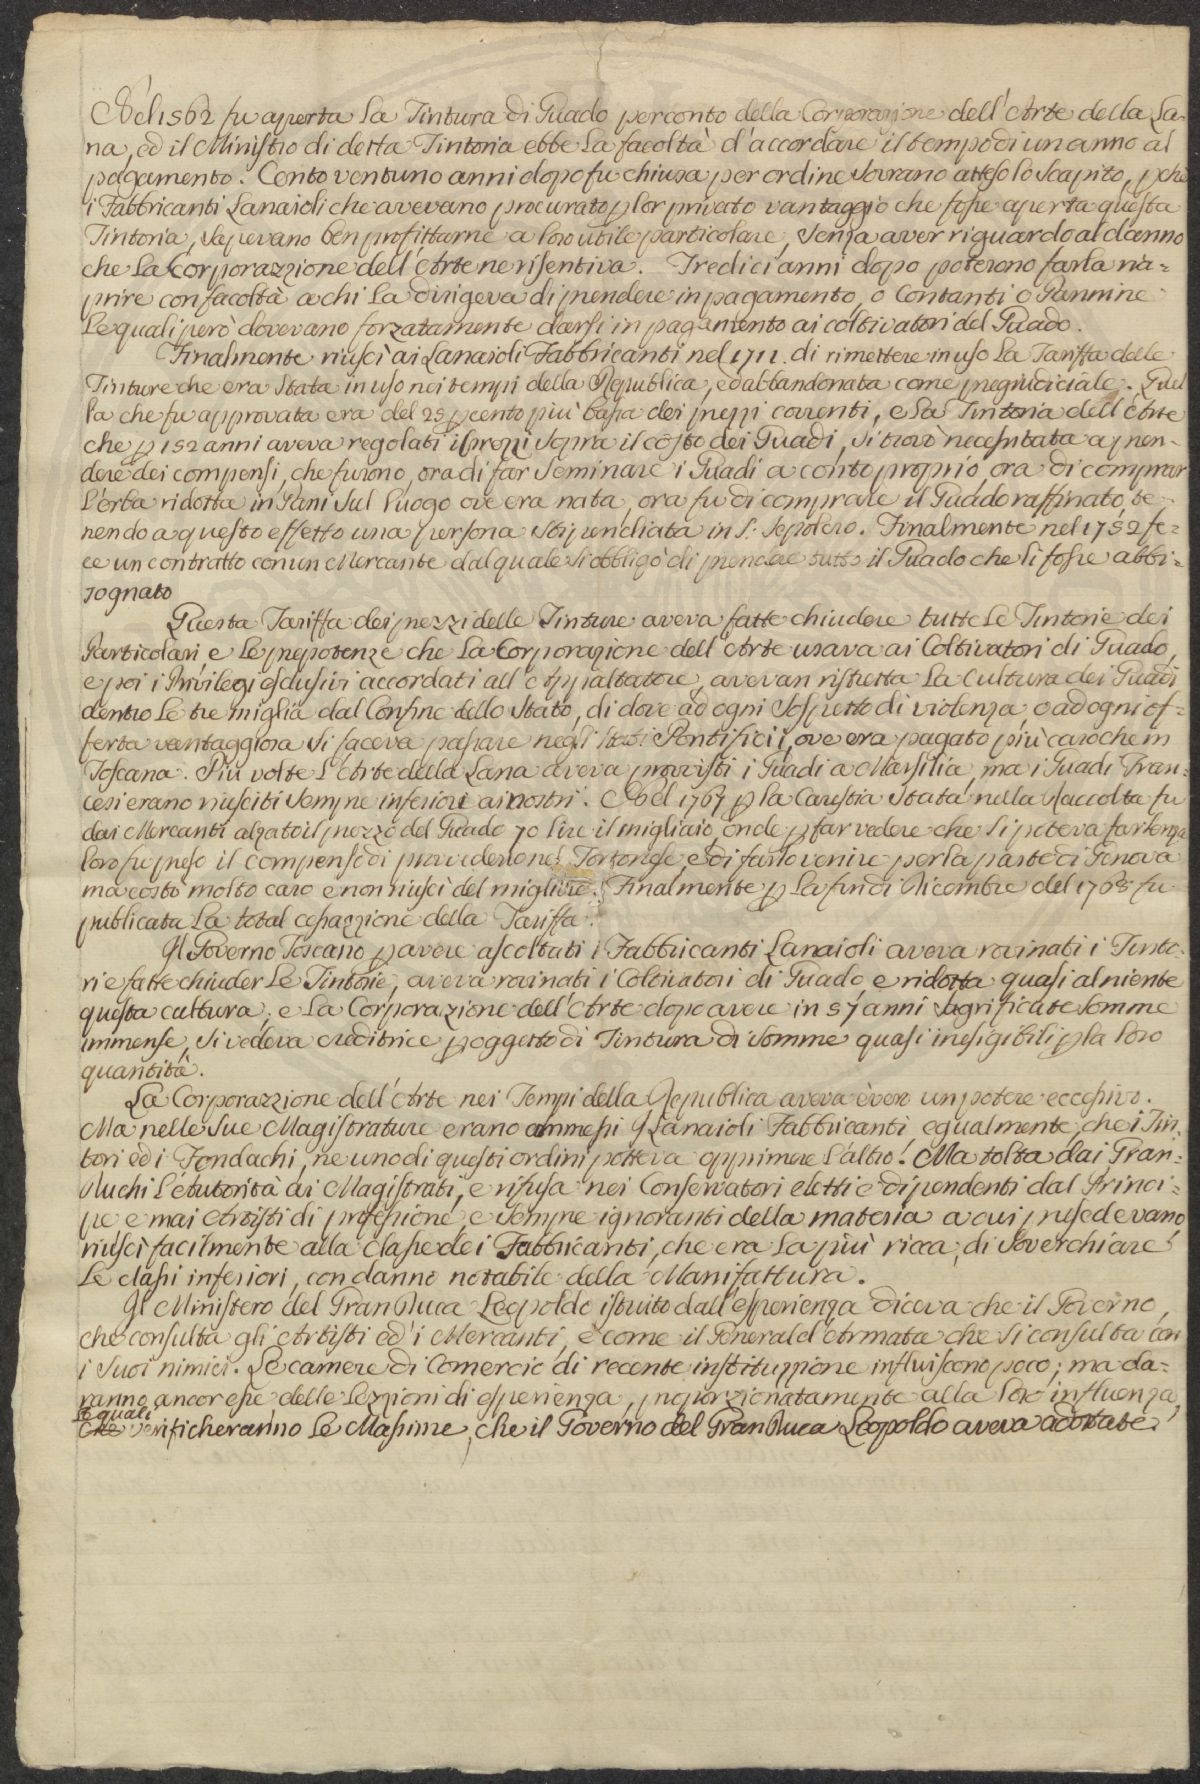 Nel 1562 fu aperta La Tintura di Guado per conto della Corporazione dell'Arte della La-
na, ed il Ministro di detta Tintoria ebbe La facoltà d'accordare il tempo di un anno al
pagamento. Cento ventuno anni dopo fu chiusa per ordine sovrano atteso lo scapito, pchè
i Fabbricanti Lanaioli che avevano procurato p lor privato vantaggio che fosse aperta questa
Tintoria, sapevano ben profittarne a loro utile particolare, senza aver riguardo al danno
che La Corporazzione dell'Arte ne risentiva. Tredici anni dopo poterono farla ria-
prire con facoltà a chi La dirigeva di prendere in pagamento, o Contanti o Pannine
Le quali però dovevano forzatamente darsi in pagamento ai coltivatori del Guado.
Finalmente riuscì ai Lanaioli Fabbricanti nel 1711. di rimettere in uso La Tariffa delle
Tinture che era stata in uso nei tempi della Republica, ed abbandonata come pregiudiciale. Quel-
la che fu approvata era del 25 p cento più bassa dei prezzi correnti, e La Tintoria dell'Arte
che p 152 anni aveva regolati i prezzi sopra il costo dei Guadi, si trovò necessitata a pren-
dere dei compensi, che furono, ora di far seminare i Guadi a conto proprio, ora di comprar
L'erba ridotta in Pani sul Luogo ove era nata, ora fu di comprare il Guado raffinato, te-
nendo a questo effetto una persona stipendiata in S. Sepolcro. Finalmente nel 1752 fe-
ce un contratto con un Mercante dal quale si obbligò di prendere tutto il Guado che Li fosse abbi-
sognato
Questa Tariffa dei prezzi delle Tinture aveva fatte chiudere tutte Le Tintorie dei
Particolari, e Le prepotenze che La Corporazione dell'Arte usava ai Coltivatori di Guado,
e poi i Privilegi esclusivi accordati all'Appaltatore, avevan ristretta La Cultura dei Guadi
dentro Le tre miglia dal Confine dello Stato, di dove ad ogni sospetto di violenza, o ad ogni of-
ferta vantaggiosa si faceva passare negli Stati Pontificii, ove era pagato più caro che in
Toscana. Più volte L'Arte della Lana aveva provvisti i Guadi a Marsilia, ma i Guadi Fran-
cesi erano riusciti sempre inferiori ai nostri. Nel 1767 p la Carestia stata nella Raccolta fu
dai Mercanti alzato il prezzo del Guado 70 Lire il migliaio, onde p far vedere che si poteva far senza
loro fu preso il compenso di provvederne nel Tortonese e di farlo venire per la parte di Genova
ma costò molto caro e non riuscì del migliore. Finalmente p La fin di Dicembre del 1768 fu
publicata La total cessazzione della Tariffa.
Il Governo Toscano p avere ascoltati i Fabbricanti Lanaioli aveva rovinati i Tinto-
ri e fatte chiuder Le Tintorie, aveva rovinati i Coltivatori di Guado, e ridotta quasi al niente
questa cultura; e La Corporazione dell'Arte dopo avere in 57 anni sagrificate somme
immense, si vedeva creditrice p oggetto di Tintura di somme quasi inesigibili p la loro
quantità.
La Corporazzione dell'Arte nei Tempi della Republica aveva è vero un potere eccessivo.
Ma nelle sue Magistrature erano ammessi i Lanaioli Fabbricanti, egualmente, che i Tin-
tori ed i Fondachi, ne uno di questi ordini poteva opprimere L'altro. Ma tolta dai Gran-
Duchi L'Autorità ai Magistrati, e rifusa nei Conservatori eletti e dipendenti dal Princi-
pe e mai Artisti di professione, e sempre ignoranti della materia a cui presedevano,
riuscì facilmente alla classe dei Fabbricanti, che era La più ricca, di soverchiare
Le classi inferiori, con danno notabile della Manifattura.
Il Ministero del Gran Duca Leopoldo istruito dall'esperienza diceva che il Governo,
che consulta gli Artisti ed i Mercanti, è come il General d'Armata che si consulta con
i suoi nimici. Le camere di Comercio di recente instituzzione influiscono poco; ma da-
ranno ancor esse delle Lezzioni di esperienza, proporzionatamente alla loro influenza,
Le quali
che verificheranno Le Massime, che il Governo del Gran Duca Leopoldo aveva adottate.